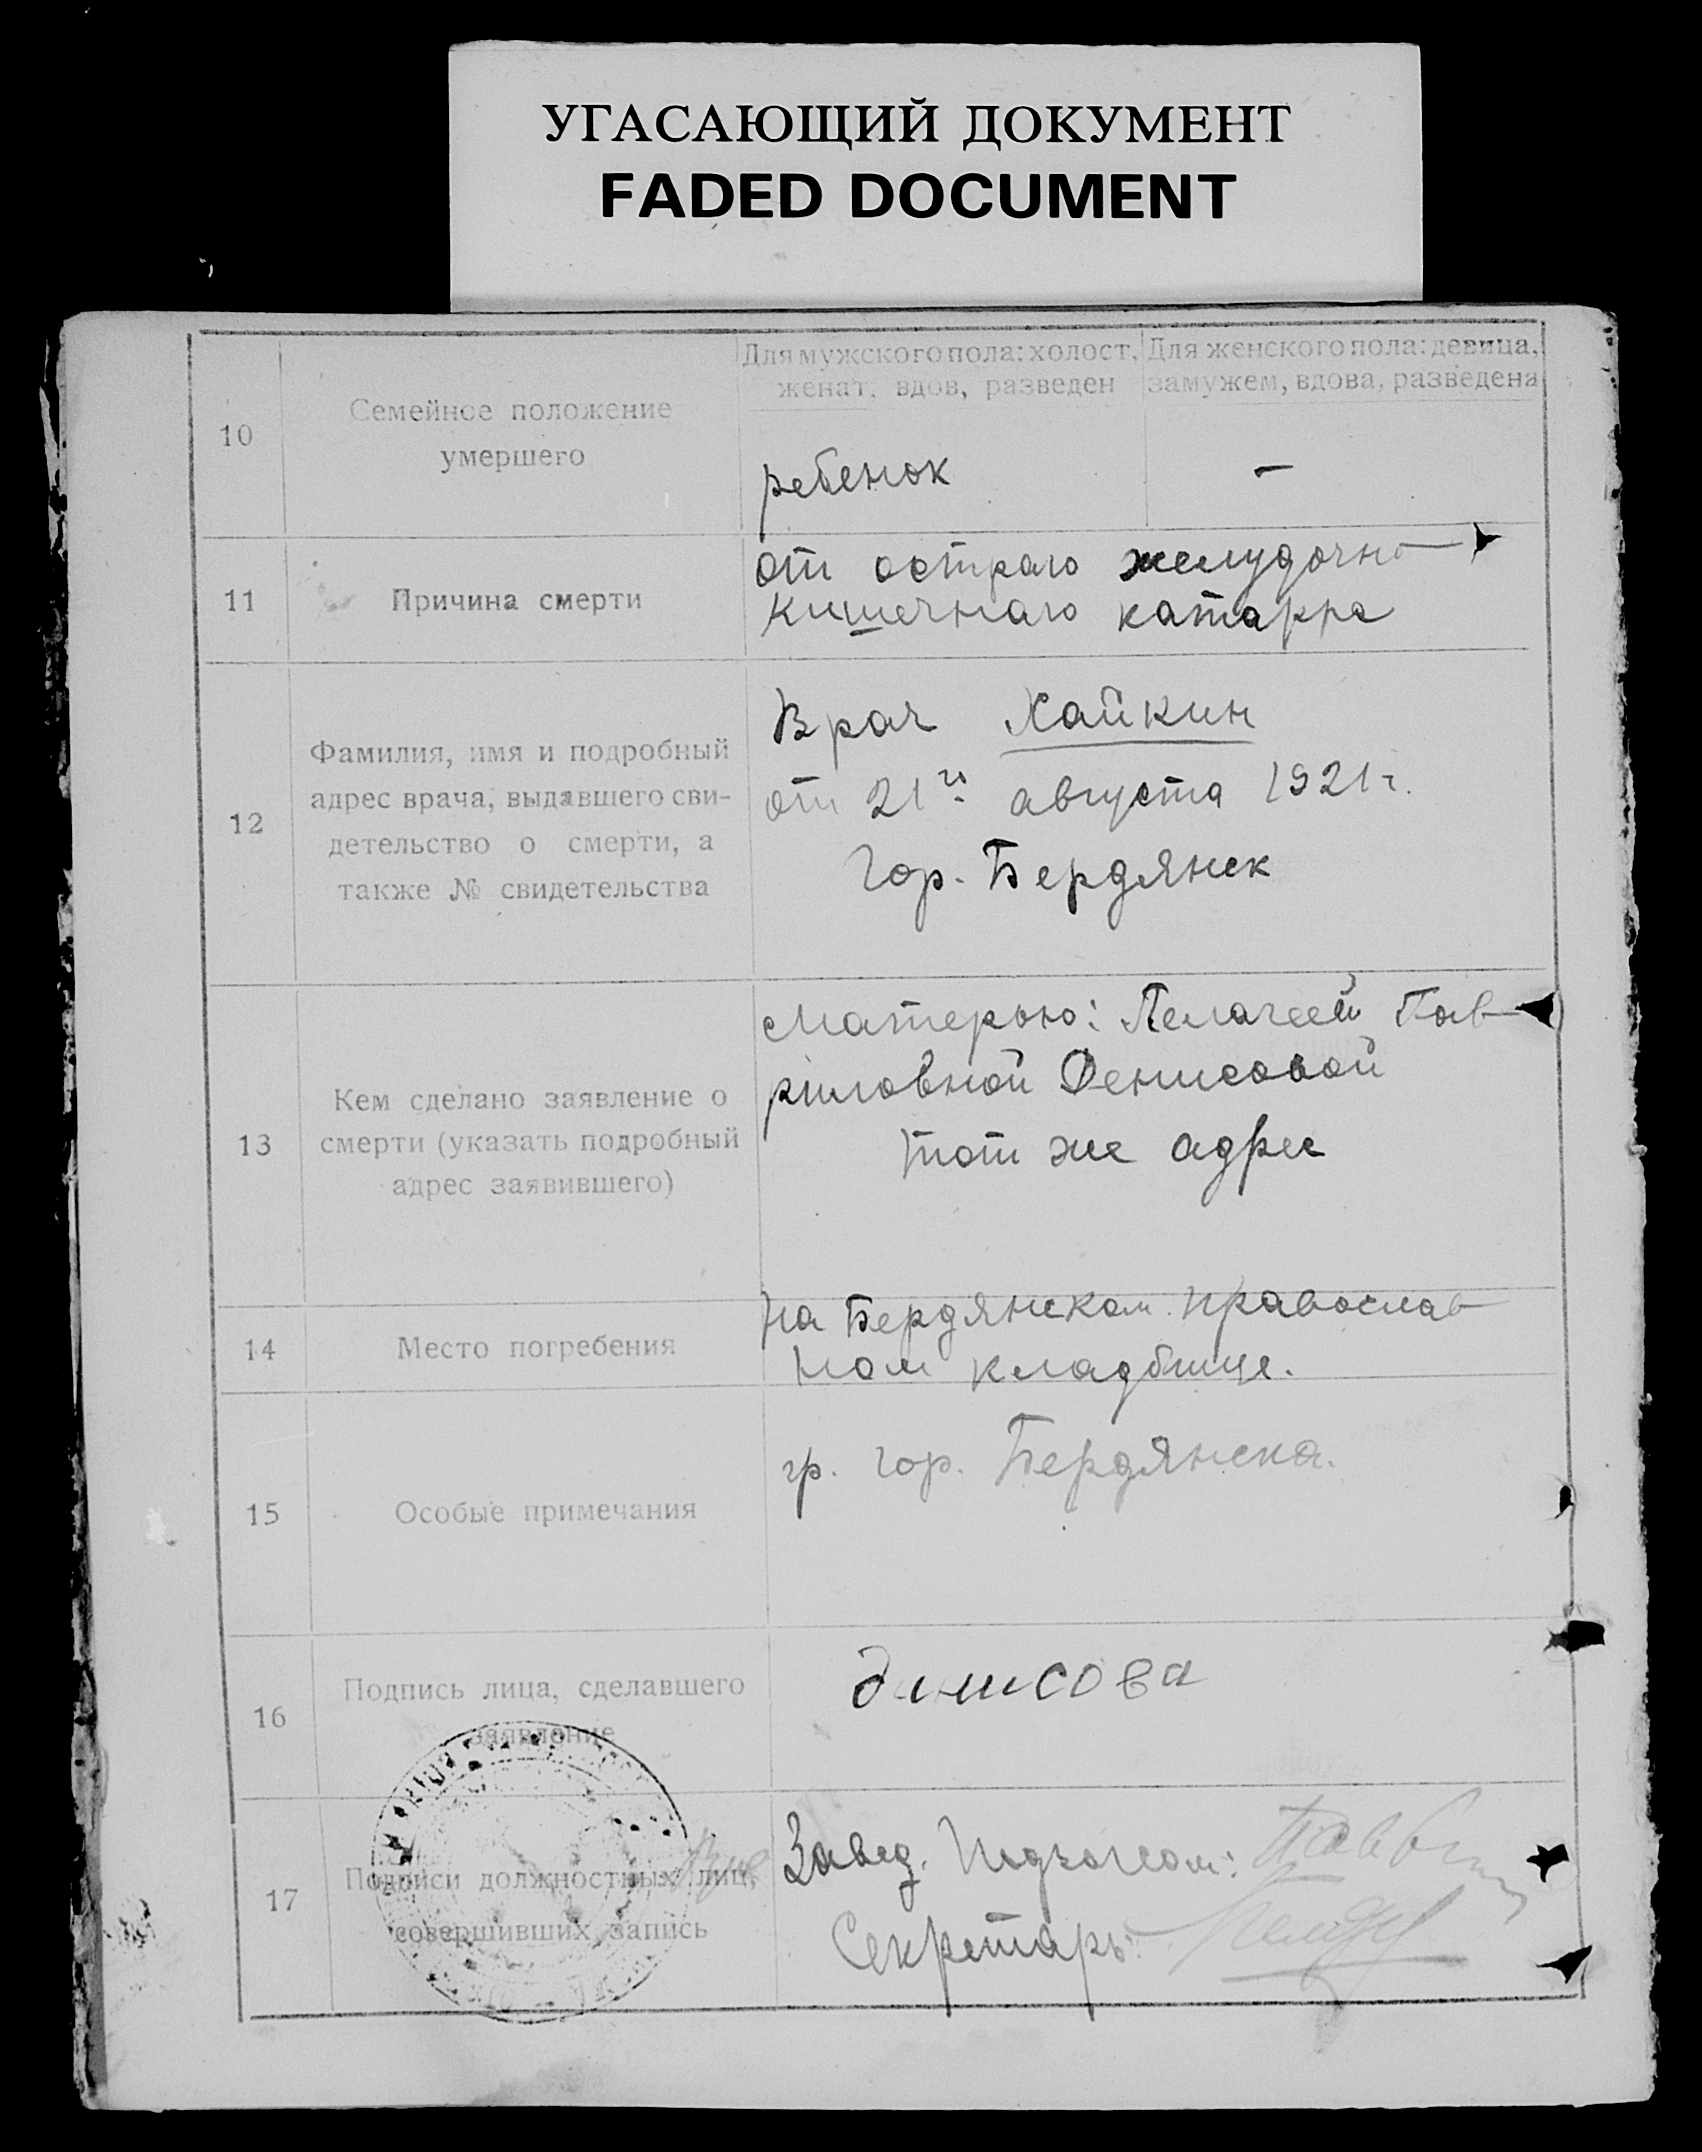 УГАСАЮЩИЙ ДОКУМЕНТ
FADED DOCUMENT
10
Семейное положение
умершего
Для мужского пола: холост,
женат, вдов, разведен
Для женского пола: девица,
замужем, вдова, разведена
ребенок
-
11
Причина смерти
от остраго желудочно
кишечнаго катарра
12
Фамилия, имя и подробный
адрес врача, выдавшего сви-
детельство о смерти, а
также № свидетельства
Врач Хайкин
от 21го августа 1921 г.
Гор. Бердянск
13
Кем сделано заявление о
смерти (указать подробный
адрес заявившего)
Матерью: Пелагеей Гав-
риловной Денисовой
тот же адрес
14
Место погребения
На Бердянском православ
ном кладбище.
15
Особые примечания
гр. гор. Бердянска.
16
Подпись лица, сделавшего
заявление
Динисова
17
Подписи должностных лиц,
совершивших запись
Завед. Подзагсом:
Секретарь: